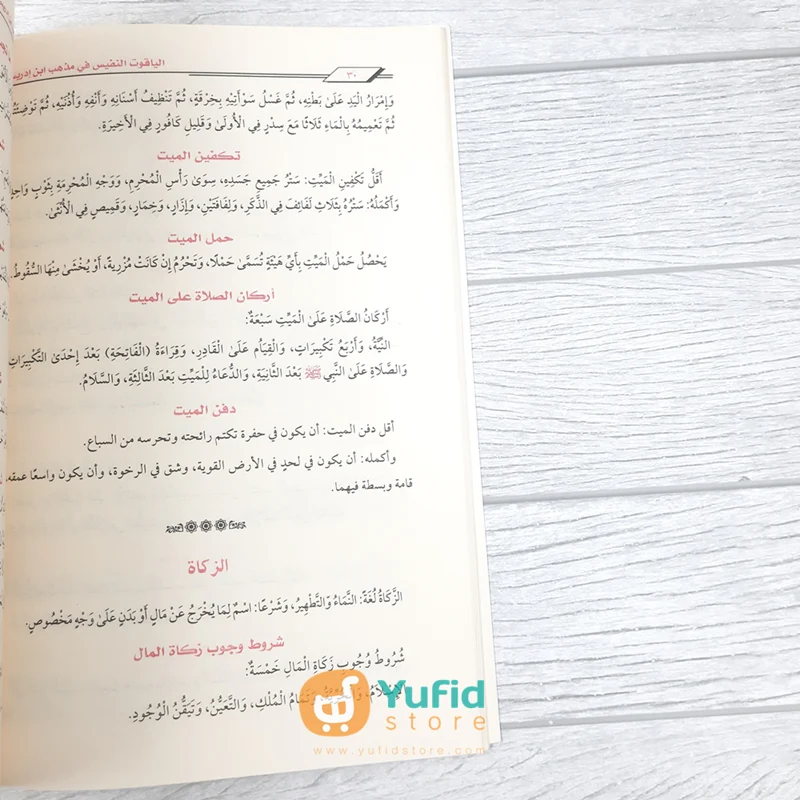 الياقوت النفيس في مذهب ابن إدريس
٣٠
وَإِمْرَارُ الْيَدِ عَلَىٰ بَطْنِهِ، ثُمَّ غَسْلُ سَوْأَتَيْهِ بِخِرْقَةٍ، ثُمَّ تَنْظِيفُ أَسْنَانِهِ وَأَنْفِهِ وَأُذُنَيْهِ، ثُمَّ تَوْضِئَتُهُ
ثُمَّ تَعْمِيمُهُ بِالْمَاءِ ثَلَاثًا مَعَ سِدْرٍ فِي الْأُولَىٰ وَقَلِيلِ كَافُورٍ فِي الْأَخِيرَةِ.
تكفين الميت
أَقَلُّ تَكْفِينِ الْمَيِّتِ: سَتْرُ جَمِيعِ جَسَدِهِ، سِوَىٰ رَأْسِ الْمُحْرِمِ، وَوَجْهِ الْمُحْرِمَةِ بِثَوْبٍ وَاحِدٍ
وَأَكْمَلُهُ: سَتْرُهُ بِثَلَاثِ لَفَائِفَ فِي الذَّكَرِ، وَلِفَافَتَيْنِ، وَإِزَارٍ، وَخِمَارٍ، وَقَمِيصٍ فِي الْأُنْثَىٰ.
حمل الميت
يَحْصُلُ حَمْلُ الْمَيِّتِ بِأَيِّ هَيْئَةٍ تُسَمَّىٰ حَمْلًا، وَتَحْرُمُ إِنْ كَانَتْ مُزْرِيَةً، أَوْ يُخْشَىٰ مِنْهَا السُّقُوطُ.
أركان الصلاة على الميت
أَرْكَانُ الصَّلَاةِ عَلَىٰ الْمَيِّتِ سَبْعَةٌ:
النِّيَّةُ، وَأَرْبَعُ تَكْبِيرَاتٍ، وَالْقِيَامُ عَلَىٰ الْقَادِرِ، وَقِرَاءَةُ (الْفَاتِحَةِ) بَعْدَ إِحْدَىٰ التَّكْبِيرَاتِ
وَالصَّلَاةُ عَلَىٰ النَّبِيِّ ﷺ بَعْدَ الثَّانِيَةِ، وَالدُّعَاءُ لِلْمَيِّتِ بَعْدَ الثَّالِثَةِ، وَالسَّلَامُ.
دفن الميت
أقل دفن الميت: أن يكون في حفرة تكتم رائحته وتحرسه من السباع.
وأكمله: أن يكون في لحدٍ في الأرض القوية، وشق في الرخوة، وأن يكون واسعًا عمقه
قامة وبسطة فيهما.
الزكاة
الزَّكَاةُ لُغَةً: النَّمَاءُ وَالتَّطْهِيرُ، وَشَرْعًا: اسْمٌ لِمَا يُخْرَجُ عَنْ مَالٍ أَوْ بَدَنٍ عَلَىٰ وَجْهٍ مَخْصُوصٍ.
شروط وجوب زكاة المال
شُرُوطُ وُجُوبِ زَكَاةِ الْمَالِ خَمْسَةٌ:
الْإِسْلَامُ، وَالْحُرِّيَّةُ، وَتَمَامُ الْمُلْكِ، وَالتَّعَيُّنُ، وَتَيَقُّنُ الْوُجُودِ.
Yufid
store
www.yufidstore.com